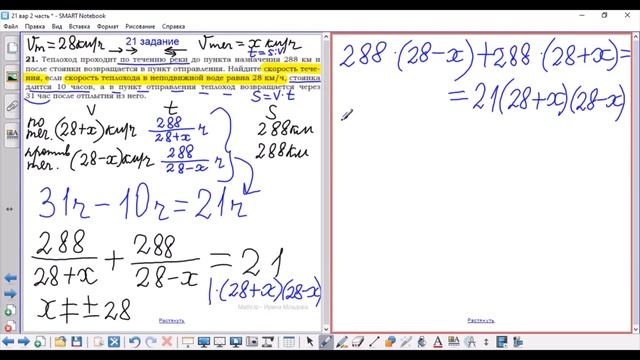 21 вар 2 часть * - SMART Notebook
Файл Правка Вид Вставка Формат Инструменты Рисование Справка
Vт=28км/ч 21 задание Vтеч=x км/ч
t=S:V
21. Теплоход проходит по течению реки до пункта назначения 288 км и
после стоянки возвращается в пункт отправления. Найдите скорость тече-
ния, если скорость теплохода в неподвижной воде равна 28 км/ч, стоянка
длится 10 часов, а в пункт отправления теплоход возвращается через
31 час после отплытия из него.
S=V·t
V t S
по теч. (28+x)км/ч 288/(28+x) ч 288км
против теч. (28-x)км/ч 288/(28-x) ч 288км
31ч-10ч=21ч
288/(28+x) + 288/(28-x) = 21
|·(28+x)(28-x)
x≠±28
MathUp - Ирина Младова
Растянуть
288·(28-x)+288·(28+x)=
=21(28+x)(28-x)
Растянуть